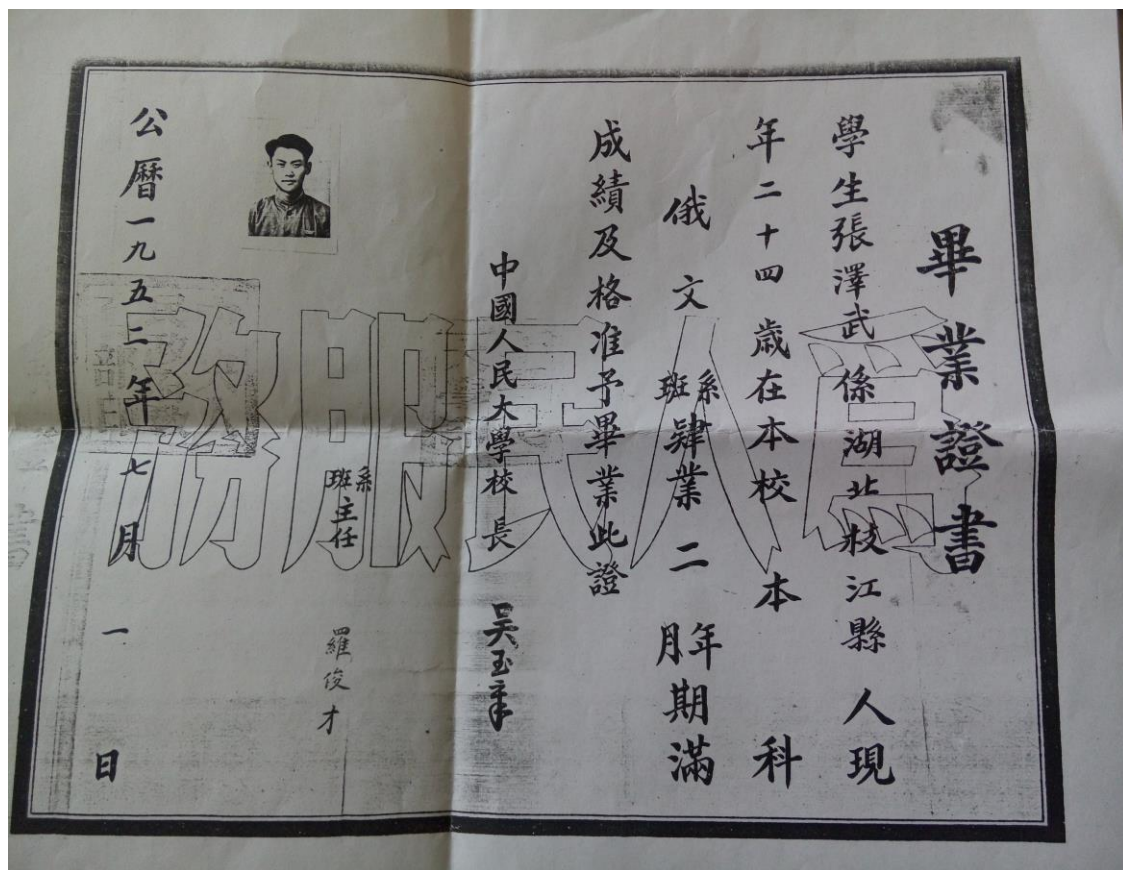 畢業證書
學生張澤武係湖北枝江縣人現
年二十四歲在本校本科
俄文系班肄業二年月期滿
成績及格准予畢業此證
中國人民大學校長 吳玉章
系班主任 羅俊才
公曆一九五二年七月一日
為人民服務